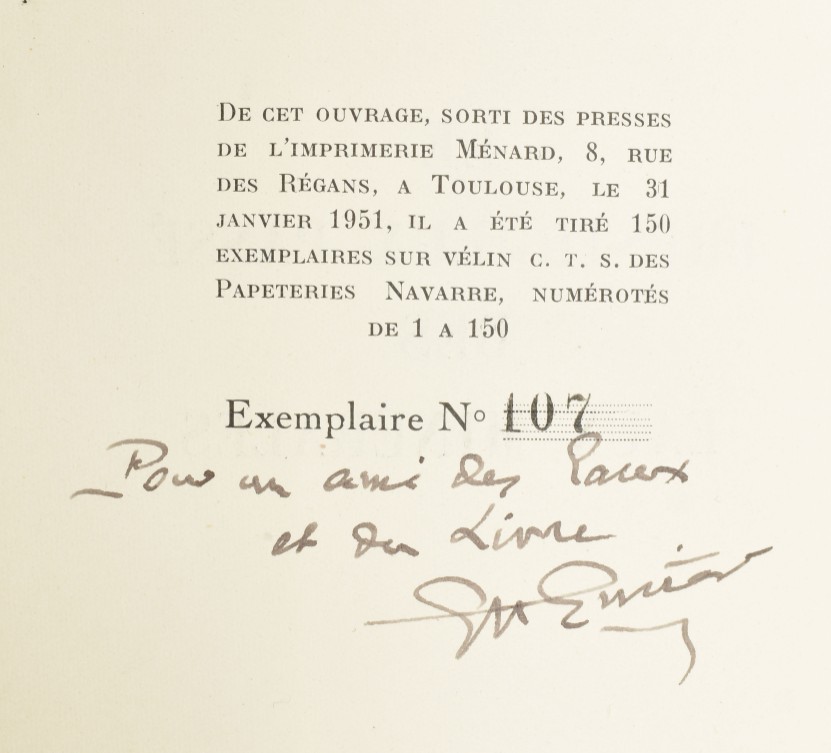 DE CET OUVRAGE, SORTI DES PRESSES
DE L'IMPRIMERIE MÉNARD, 8, RUE
DES RÉGANS, A TOULOUSE, LE 31
JANVIER 1951, IL A ÉTÉ TIRÉ 150
EXEMPLAIRES SUR VÉLIN C. T. S. DES
PAPETERIES NAVARRE, NUMÉROTÉS
DE 1 A 150
Exemplaire No 107
Pour un ami des
et du Livre